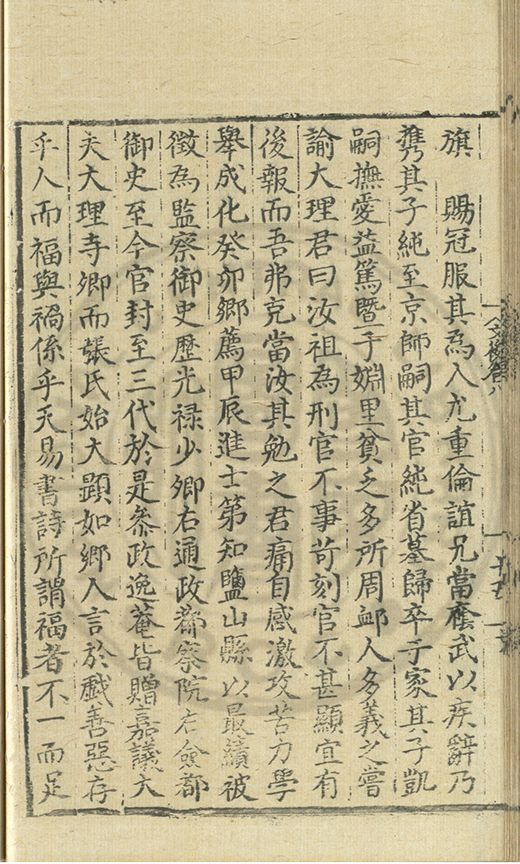 旗　賜冠服其為人尤重倫誼兄當廕武以疾辭乃
携其子純至京師嗣其官純省墓歸卒于家其子凱
嗣撫愛益篤曁于婣里貧乏多所周卹人多義之嘗
諭大理君曰汝祖為刑官不事苛刻官不甚顯宜有
後報而吾弗克當汝其勉之君痛自感激攻苦力學
舉成化癸卯鄉薦甲辰進士第知鹽山縣以最績被
徵為監察御史歷光禄少卿右通政都察院右僉都
御史至今官封至三代於是叅政逸菴皆贈嘉議大
夫大理寺卿而張氏始大顕如鄉人言於戲善惡存
乎人而福與禍係乎天易書詩所謂福者不一而足